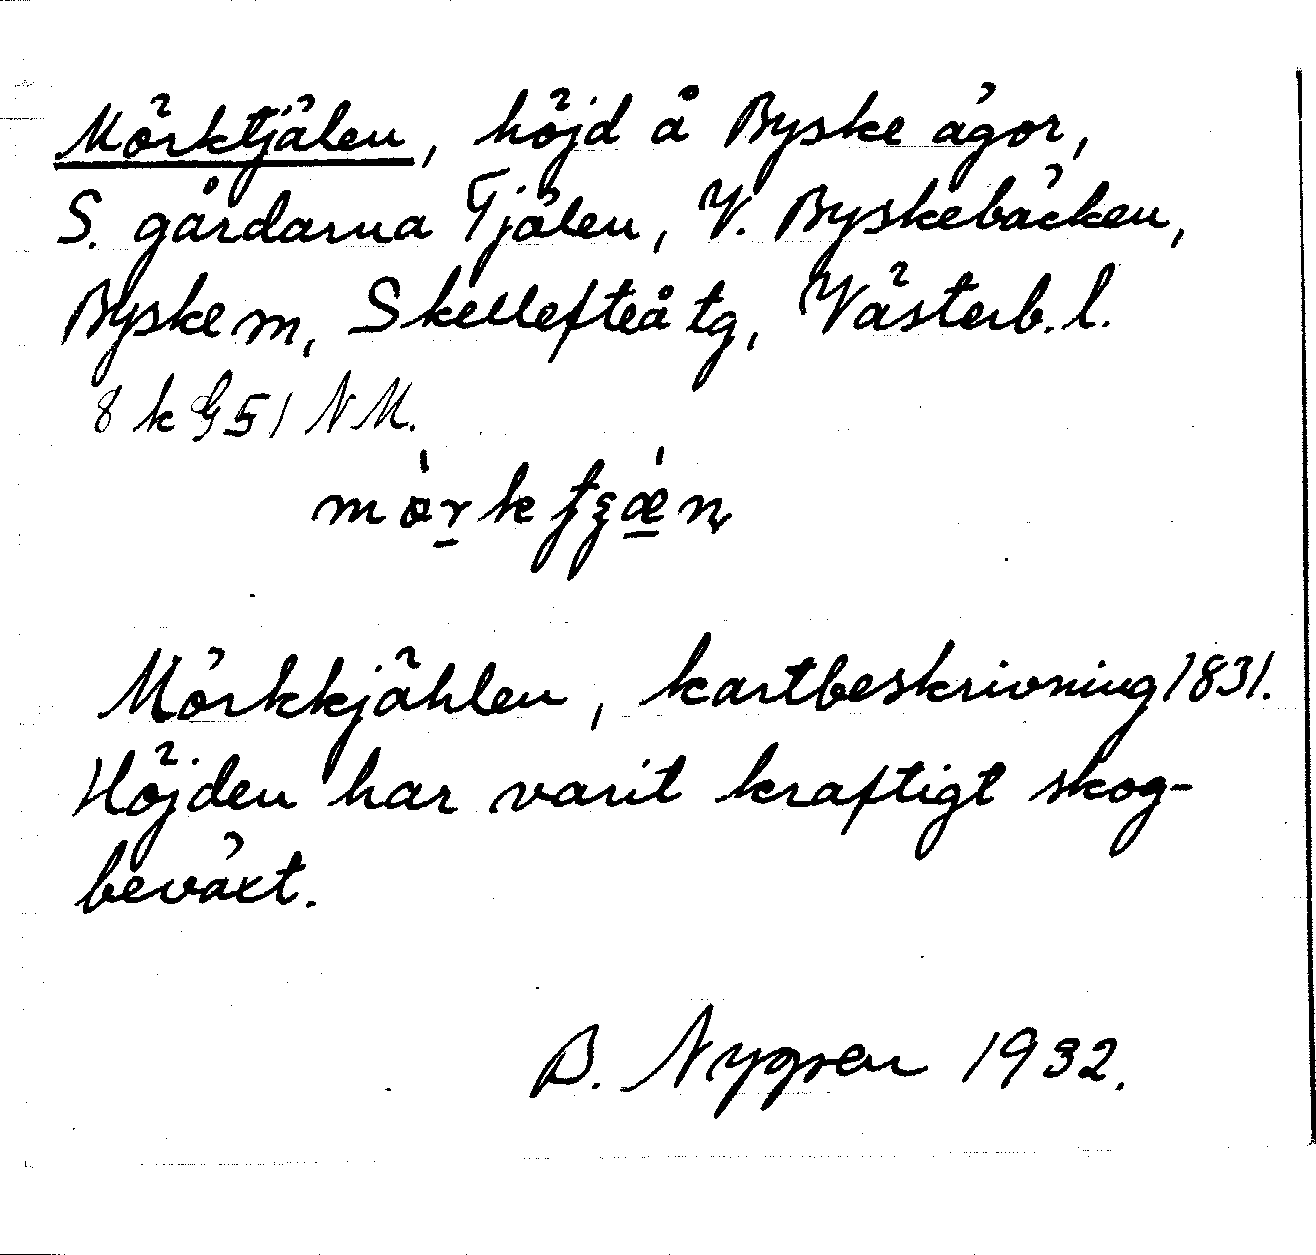 Mörktjälen, höjd å Byske ägor,
S. gårdarna Tjälen, V. Byskebäcken,
Byske m, Skellefteå tg, Västerb. l.
8 k G 51 NM.
Mörkkjählen, kartbeskrivning 1831.
Höjden har varit kraftigt skog-
beväxt.
B. Nygren 1932.